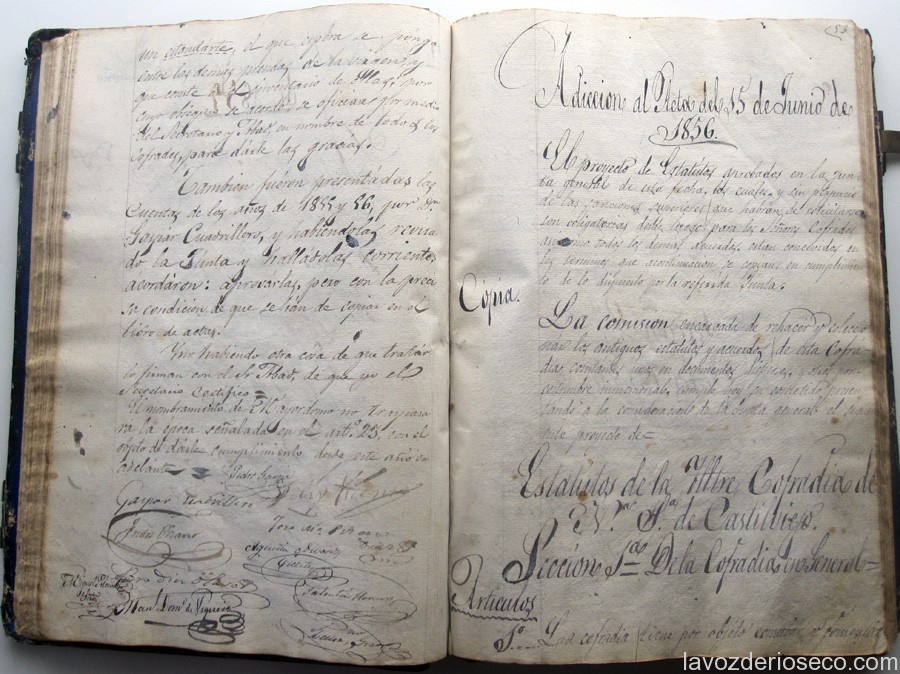 un estandarte, el que espera se ponga
entre las demas prendas de la Virgen, y
que conste en el inventario de ellas, por
cuyo obsequio se acordó se oficiase por medio
del Secretario y Abad en nombre de todos los
Cofrades, para darle las gracias.
Tambien fueron presentadas las
Cuentas de los años de 1855 y 56, por Dn
Gaspar Cuadrillero, y habiendolas revisa
do la Junta y halladolas corrientes,
acordaron: aprovarlas, pero con la preci
sa condicion de que se han de copiar en el
libro de actas.
Y no habiendo otra cosa de que tratar
lo firman con el Sr Abad, de que yo el
Secretario Certifico=
El nombramiento de Mayordomo no
ra la epoca señalada en el artº 23, con el
objeto de darle cumplimiento desde este año en
adelante=
Pedro Garcia
Gaspar Cuadrillero
Agustin Alvarez
Valentin
Manl Domz de Vigueria
53
Adiccion al Acta del 15 de Junio de
1856.
El proyecto de Estatutos aprobados en la Jun
ta general de esta fecha, los cuales, y sin perjuicio
de las sanciones superiores que habrán de solicitarse
son obligatorios desde luego para los Señores Cofrades
asi como todos los demas acuerdos, estan concebidos en
los terminos que acontinuacion se copian, en cumplimien
to de lo dispuesto por la referida Junta.
Copia.
La comision encargada de rehacer y coleccio
nar los antiguos estatutos y acuerdos de esta Cofra
dia, contenidos unos en documentos dispersos, y otros por
costumbre inmemorial, cumple hoy su cometido presen
tando a la consideracion de la Junta general el presen
te proyecto de=
Estatutos de la Yltre Cofradia de
Nra Sra de Castilviejo.
Seccion 1ª De la Cofradia en General=
Articulos
1º La cofradia tiene por objeto conservar y fomentar
lavozderioseco.com